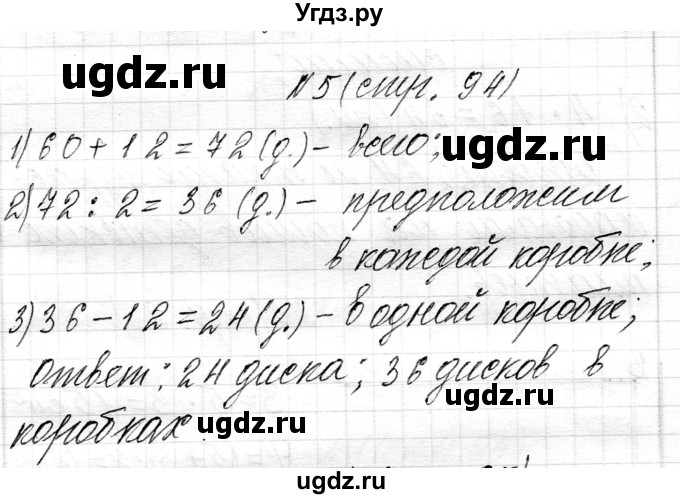 Угдз.ру
ugdz.ru
ugdz.ru
№5 (стр. 94)
1) 60 + 12 = 72 (д.) - всего;
ugdz.ru
2) 72 : 2 = 36 (д.) - предположим
ugdz.ru
в каждой коробке;
3) 36 - 12 = 24 (д.) - в одной коробке;
ugdz.ru
ответ: 24 диска; 36 дисков в
ugdz.ru
коробках.
ugdz.ru
ugdz.ru